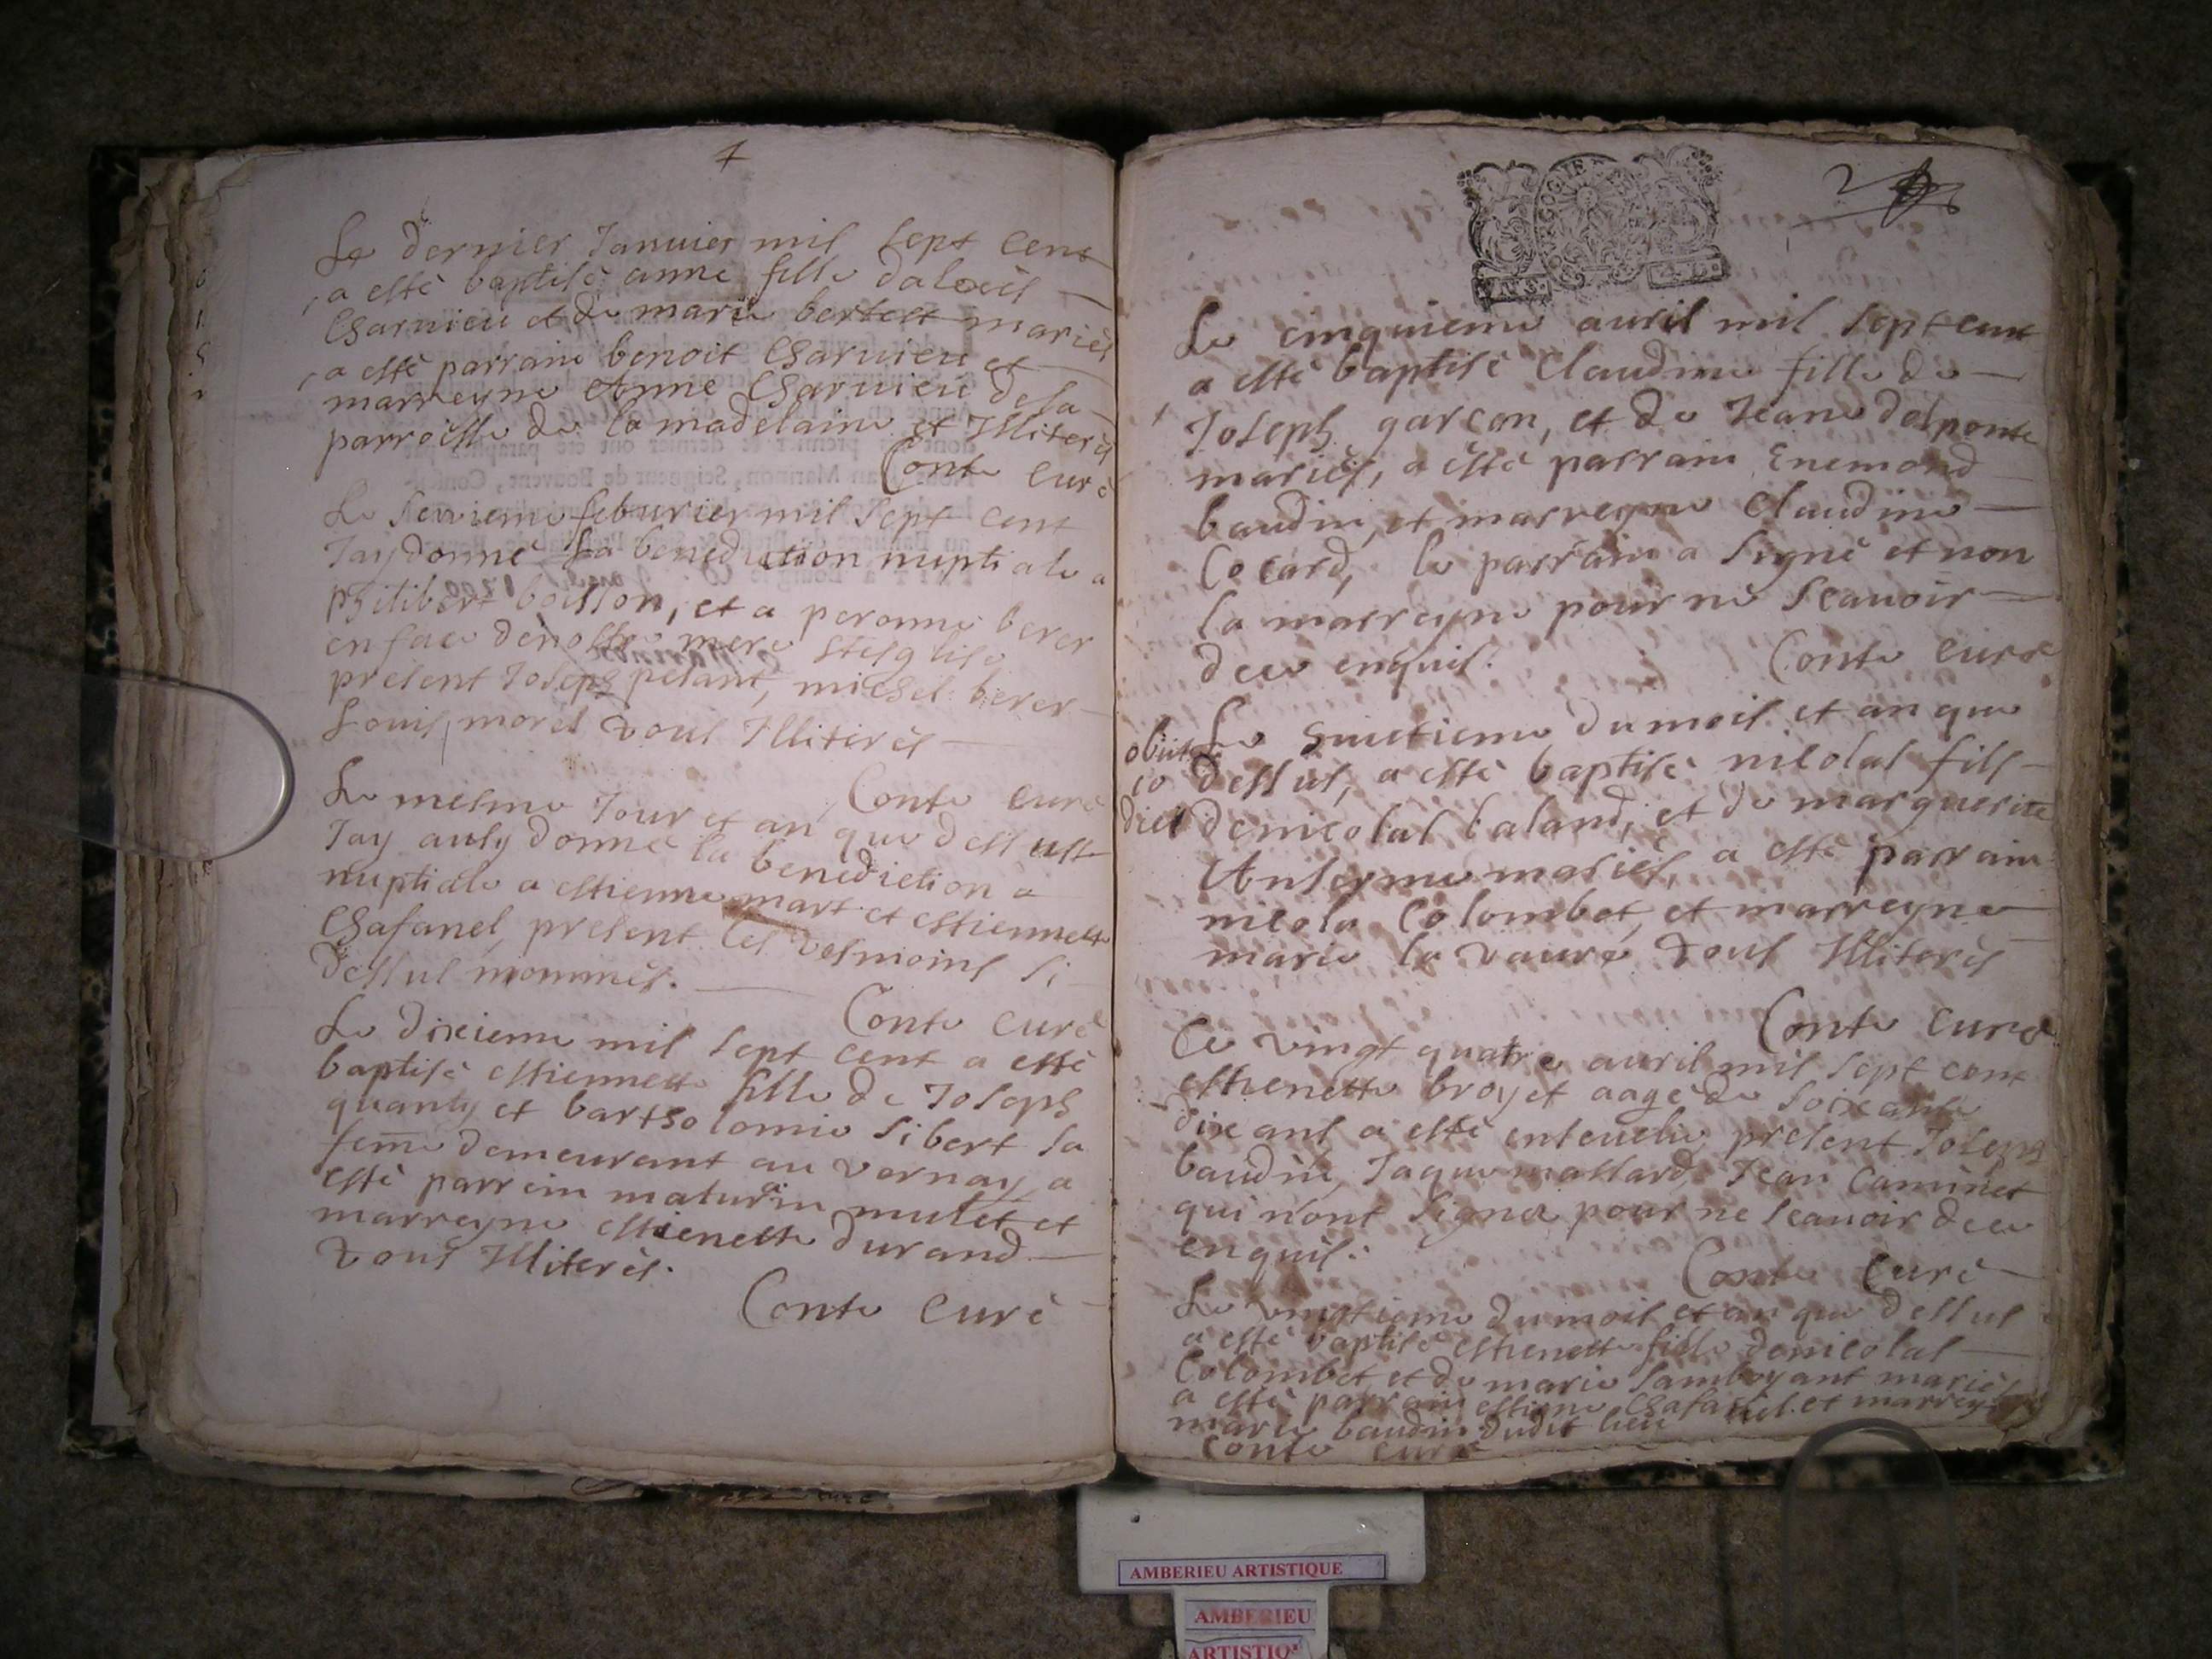 Le dernier Januier mil sept cent
a esté baptisé anne fille dalexis
Charuieu et de marie bertest mariés
a esté parrain benoit Charuieu et
marreyne Anne Charuieu de la
parroisse de la madelaine et Illiterés
Conte curé
Le feburier mil sept cent
Jay donné la benediction nuptiale a
philibert boisson, et a peronne berer
en face de nostre mere Ste sglise
présent Joseph pesant, michel berer
Louis morel tous Illiterés
Conte curé
Le mesme Jour et an que dessus
Jay ausy donné la benediction
nuptiale a estienne mart et estiennette
Chafanel, présent les tesmoins si
dessus nommés.
Conte curé
Le dixieme mil sept cent a esté
baptisé estiennette fille de Joseph
quanty et bartholomie sibert sa
feme demeurant au vernay a
esté parrein maturin mulet et
marreyne estienette durand
tous Illiterés.
Conte curé
2
Le cinquieme auril mil sept cent
a esté baptisé Claudine fille de
Joseph garson, et de Jeane delponte
mariés, a esté parrain Enemond
baudin, et marreyne Claudine
Cocard, le parrain a signé et non
la marreyne pour ne scauoir
de ce enquis.
Conte curé
obiit
Le huictieme du mois et an que
dessus, a esté baptisé nicolas fils
de nicolas baland, et de marguerite
Anselme mariés, a esté parrain
nicola Colombet, et marreyne
marie la vaure tous Illiterés
Conte curé
Le vingt quatre auril mil sept cent
estienette broyet aagé de soixante
dix ans a esté enseuelie présent Joseph
baudin, Jaque mallard, Jean Caminet
qui nont signer pour ne scauoir de ce
enquis.
Conte curé
Le vingtieme du mois et an que dessus
a esté baptisé estienette fille de nicolas
Colombet et de marie Samboyant mariés
a esté parrain estiene Chafanel et marreyne
marie baudin dudit lieu
Conte curé
AMBERIEU ARTISTIQUE
AMBERIEU
ARTISTIQ